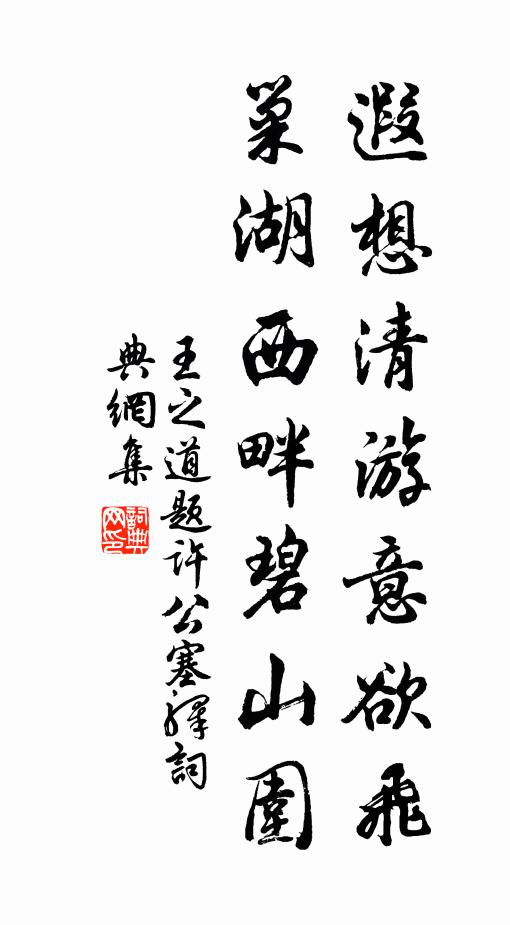 遐想清游意欲飛
巢湖西畔碧山圍
王之道題许公塞驛詞
典網集
詞典
网印